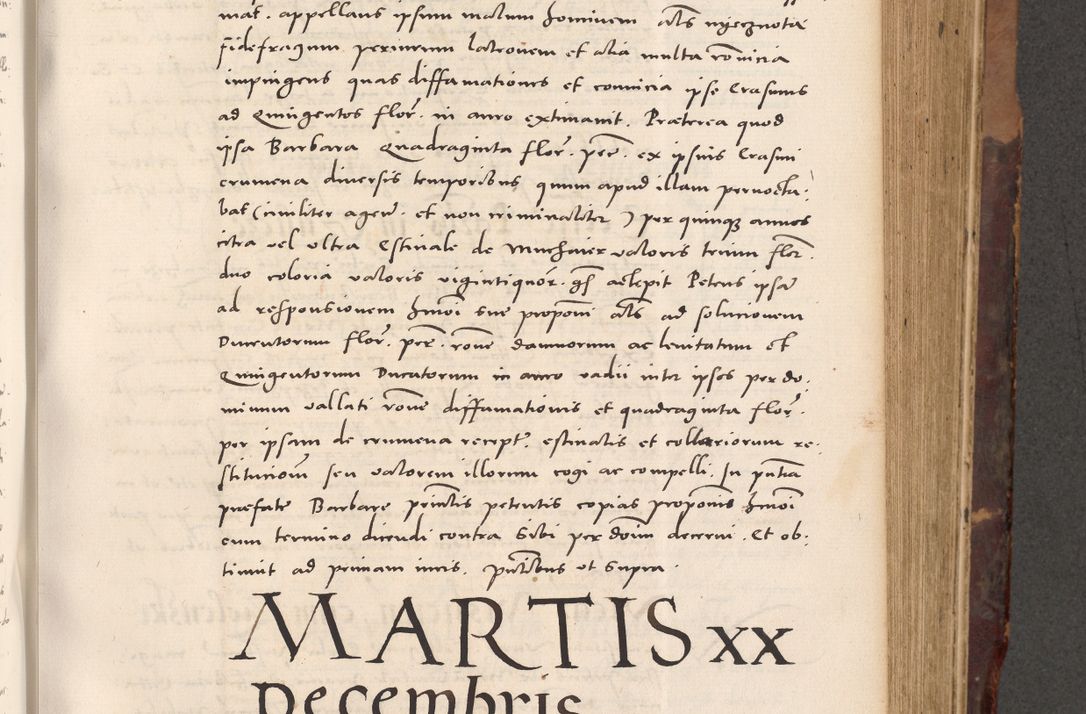 mat. appellans ipsum malum hominem als nyecznota
fidefragum periurum latronem et alia multa convicia
impingens quas diffamationes et convicia ipse Erasmus
ad Quingentos flor. in auro extimavit. Præterea quod
ipsa Barbara Quadraginta flor. per. ex ipsius Erasmi
crumena diversis temporibus quum apud illam pernocta:
bat (civiliter agen. et non criminaliter) per quinque annos
citra vel ultra Estivale de Muchaier valoris trium flor.
duo coloria valoris vigintiquor. gs accepit Petens ipsam
ad responsionem hmoi sue proponi als ad solucionem
Ducentorum flor. per. rone damnorum ac levitatum et
Quingentorum Ducatorum in auro vadii inter ipsos per do:
minum vallati rone diffamationis et quadraginta flor.
per ipsam de crumena recept. estivalis et collariorum re:
stitucionem seu valorem illorum cogi ac compelli. In pntia
præfate Barbare principalis petentis copias proponis hmoi
eum termino dicendi contra Sibi per doim decerni. Et ob:
tinuit ad primam iuris. pntibus ut supra.
MARTIS XX
Decembris